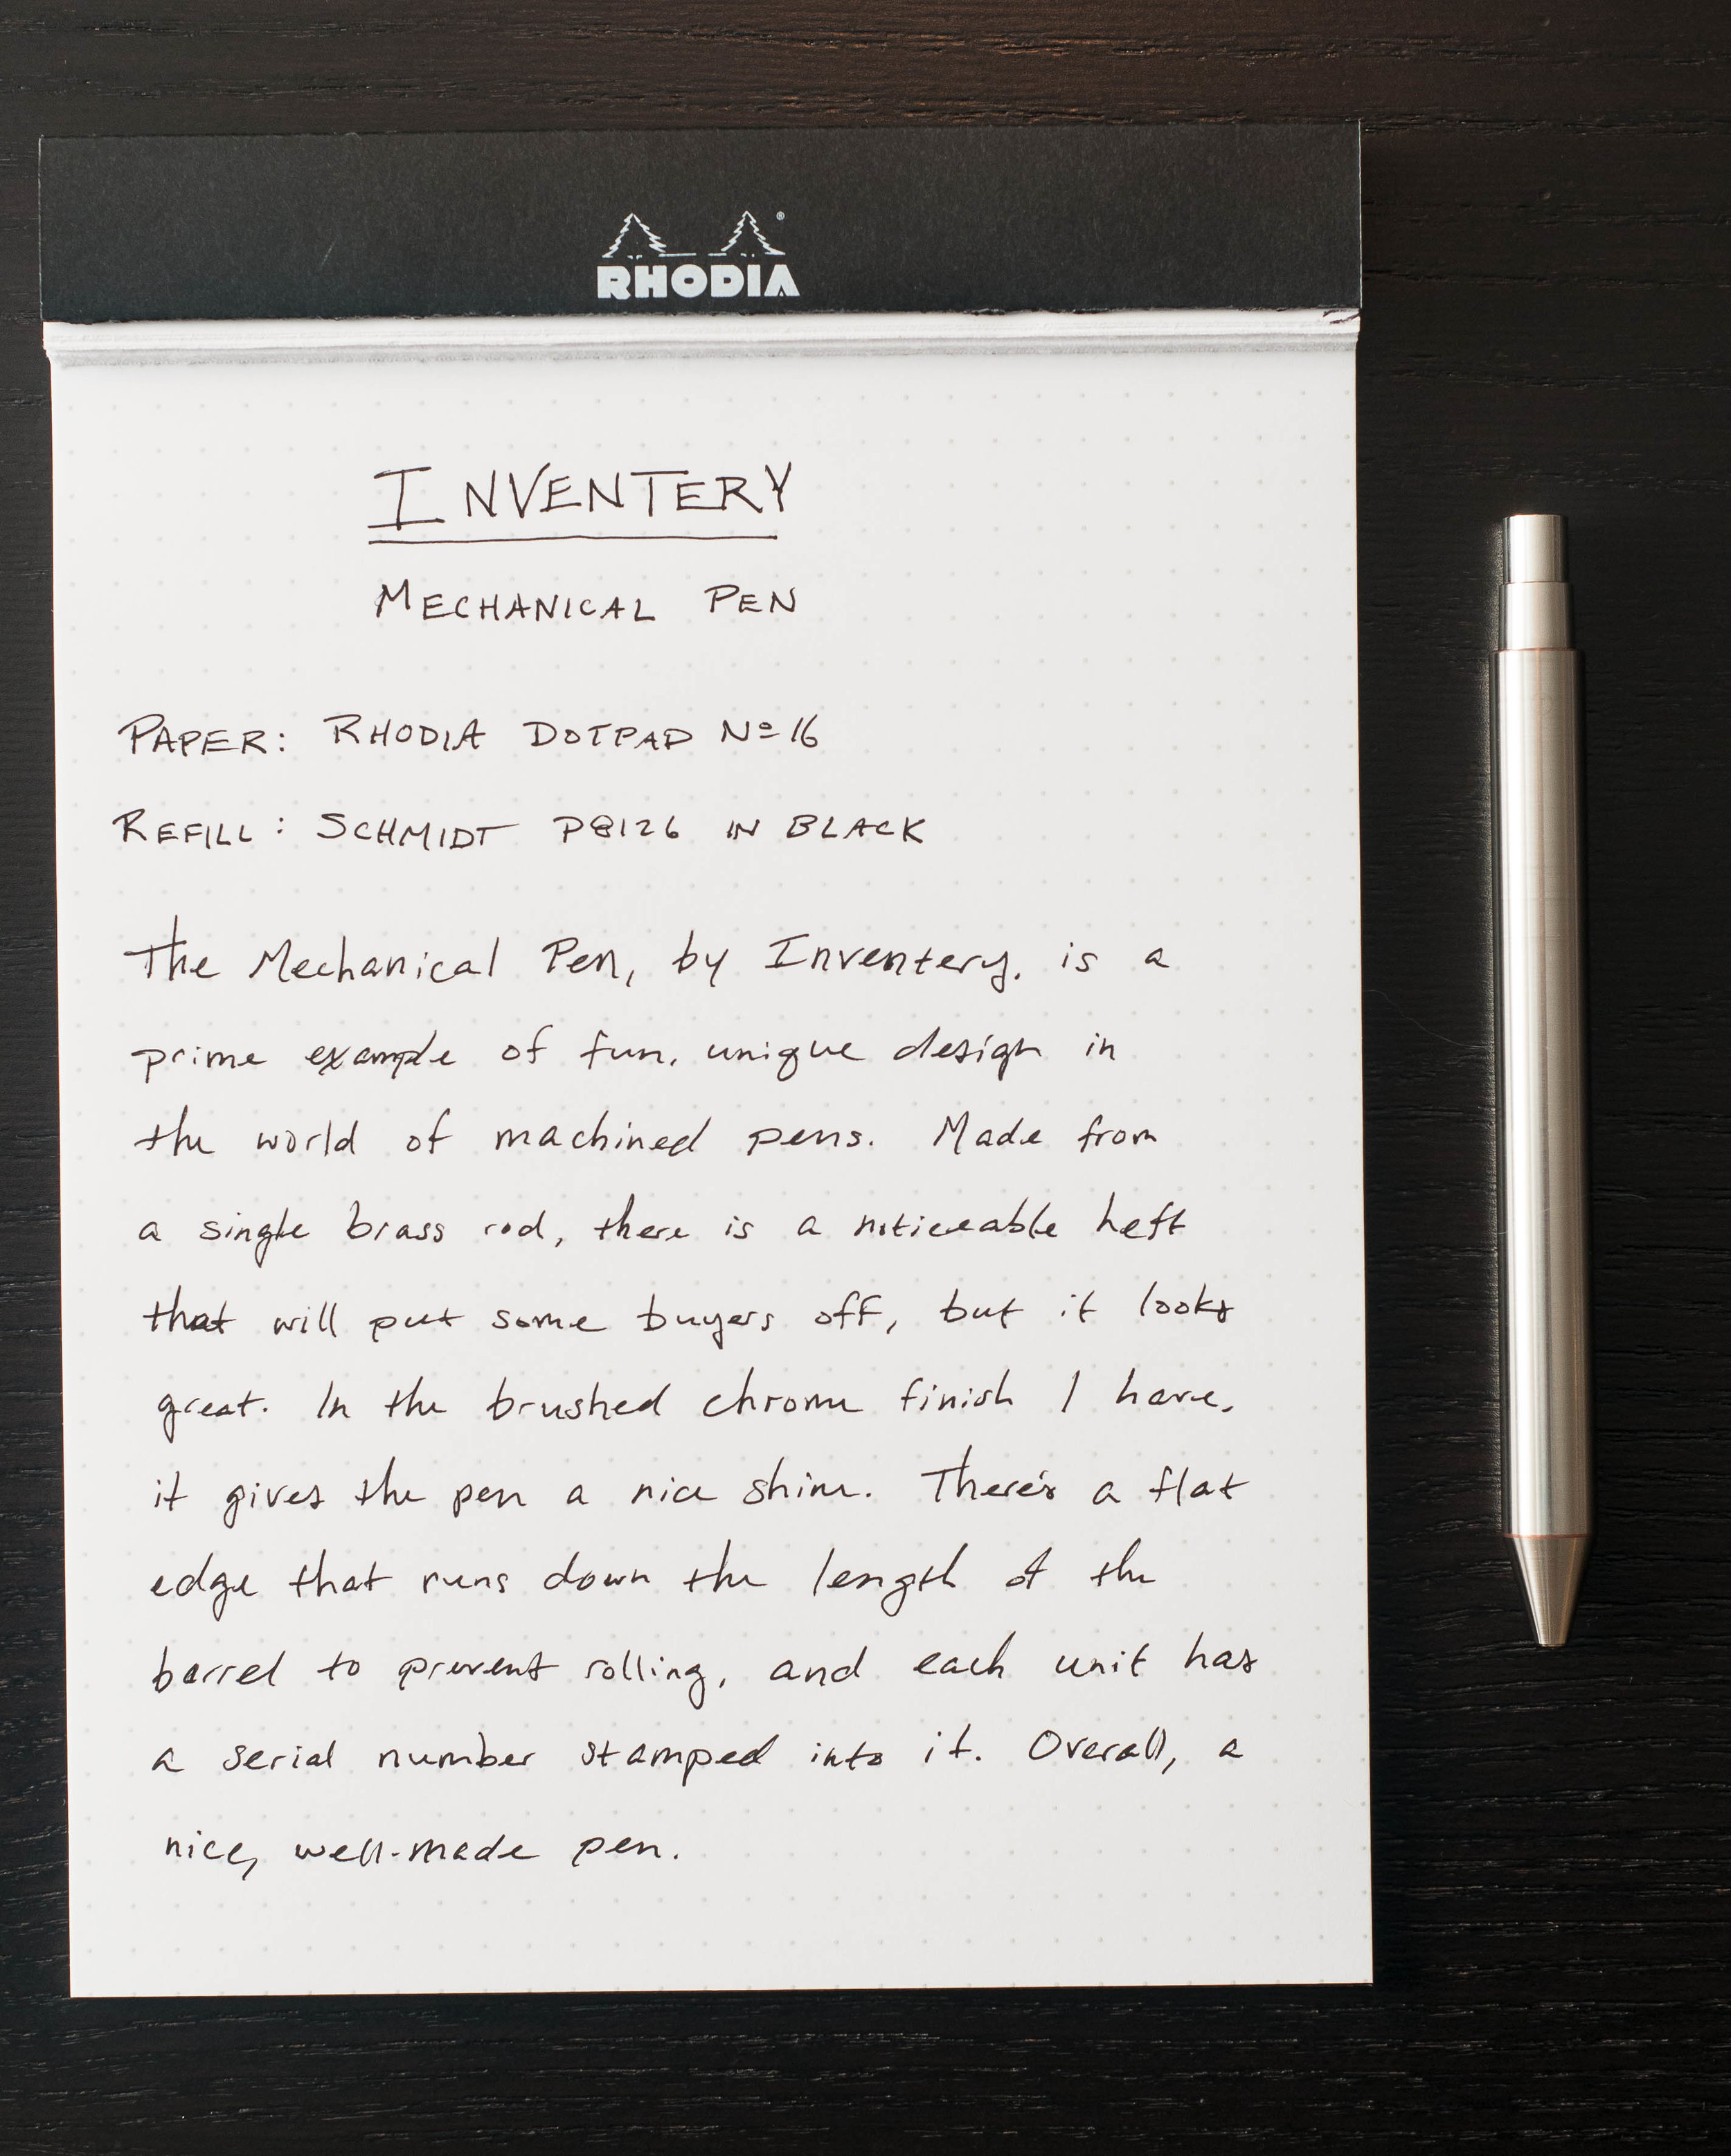 RHODIA
INVENTERY
MECHANICAL PEN
PAPER: RHODIA DOTPAD Nº16
REFILL: SCHMIDT P8126 IN BLACK
The Mechanical Pen, by Inventery, is a
prime example of fun, unique design in
the world of machined pens. Made from
a single brass rod, there is a noticeable heft
that will put some buyers off, but it looks
great. In the brushed chrome finish I have,
it gives the pen a nice shine. There's a flat
edge that runs down the length of the
barrel to prevent rolling, and each unit has
a serial number stamped into it. Overall, a
nice, well-made pen.